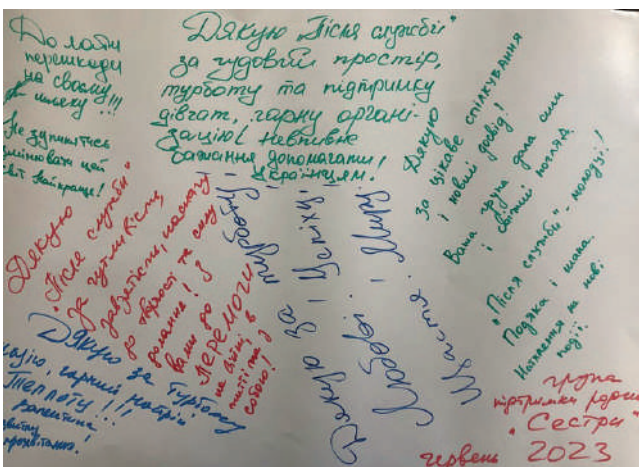 Долати
перешкоди
на своєму
шляху!!!
Не зупинятись
змінювати цей
світ найкраще!
Дякую „Після служби"
за чудовий простір,
турботу та підтримку
дівчат, гарну органі-
зацію і невпинне
бажання допомагати!
Українцям.
Дякую
за цікаве спілкування
і новий досвід!
Ваша група дала сили
і свіжий погляд.
„Після служби" - молодці!
Подяка і шана.
Натхнення на нові
події.
Дякую
„Після служби"
за чутливість,
завзятість, наснагу
до творчості та силу
долання! З
вами до
перемоги
на війні, в
житті та з
собою!
Дякую за турботу!
Любові! Успіху!
Щастя! Миру!
Дякую за турботу
гарний настрій
Теплоту!!!
Валентина
процвітання!
група
підтримки родин
„Сестри"
червень 2023